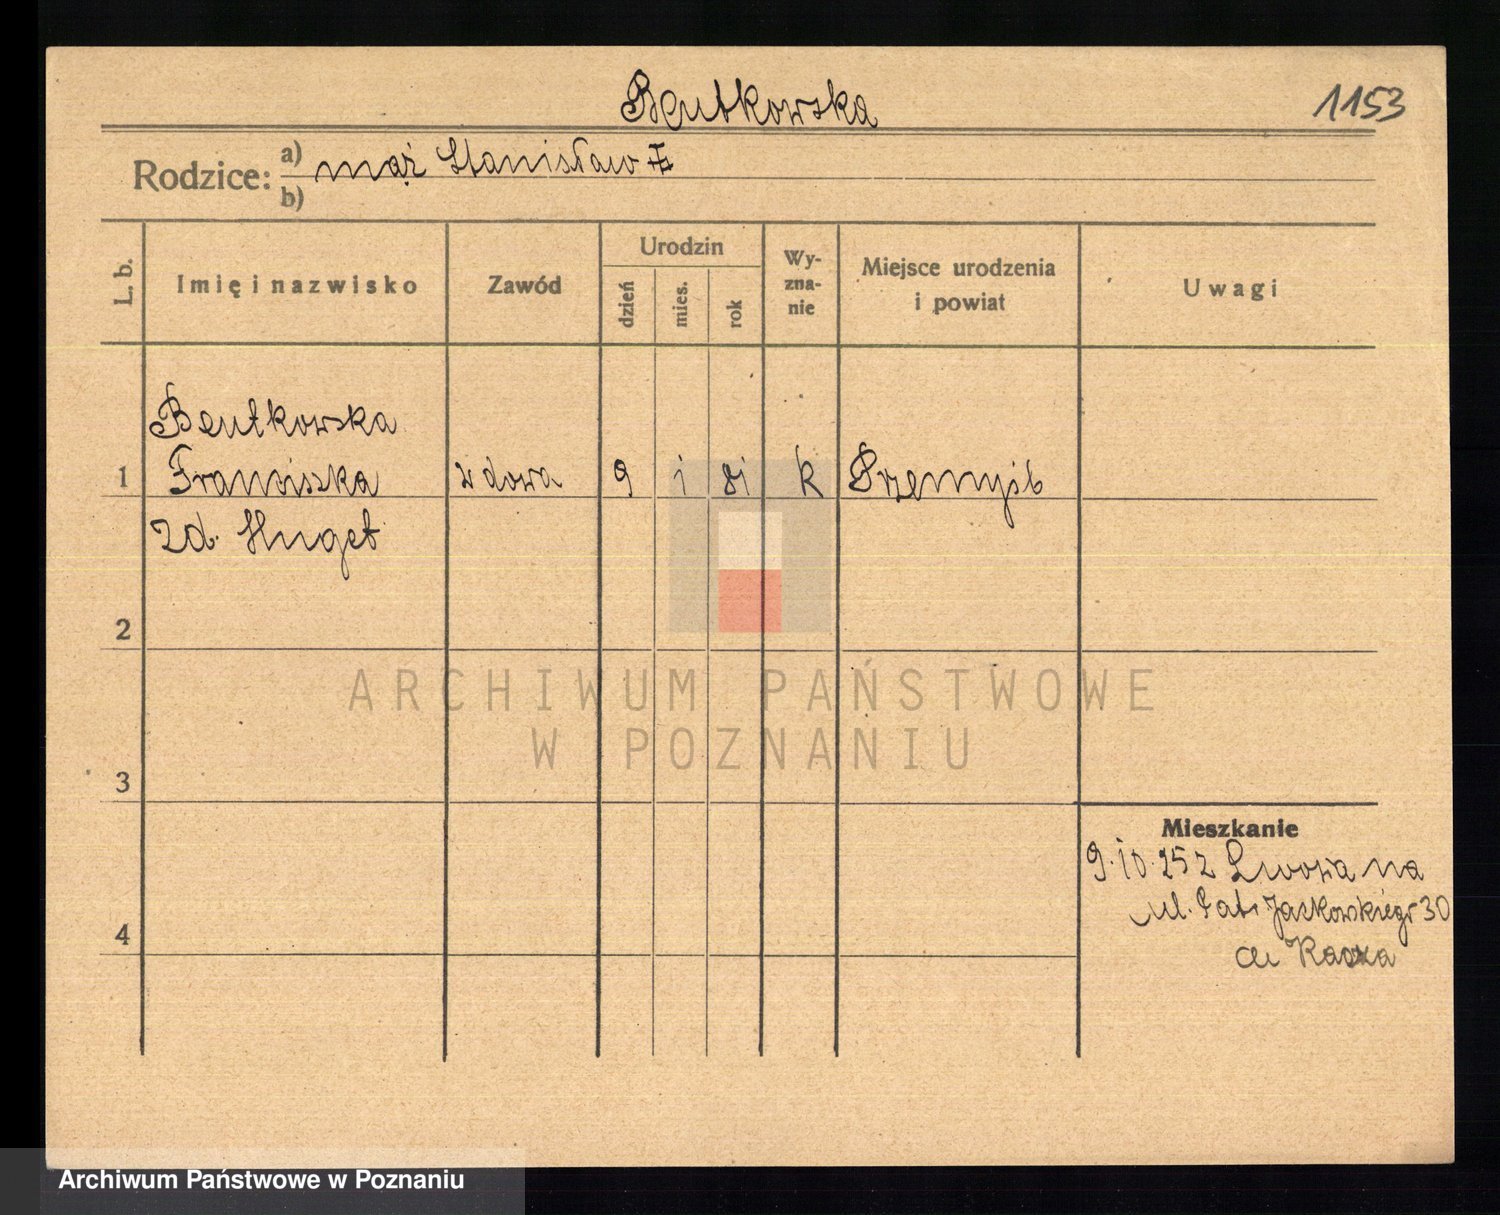 Bentkowska
1153
Rodzice:
a) mąż Stanisław
b)
L. b.
Imię i nazwisko
Zawód
Urodzin
dzień
mies.
rok
Wy-
zna-
nie
Miejsce urodzenia
i powiat
Uwagi
Bentkowska
1 Franciszka wdowa 9 1 81 k
zd. Huget
2
3
4
Mieszkanie
9.10.252 na
ul. Jackowskiego 30
ARCHIWUM PAŃSTWOWE
W POZNANIU
Archiwum Państwowe w Poznaniu